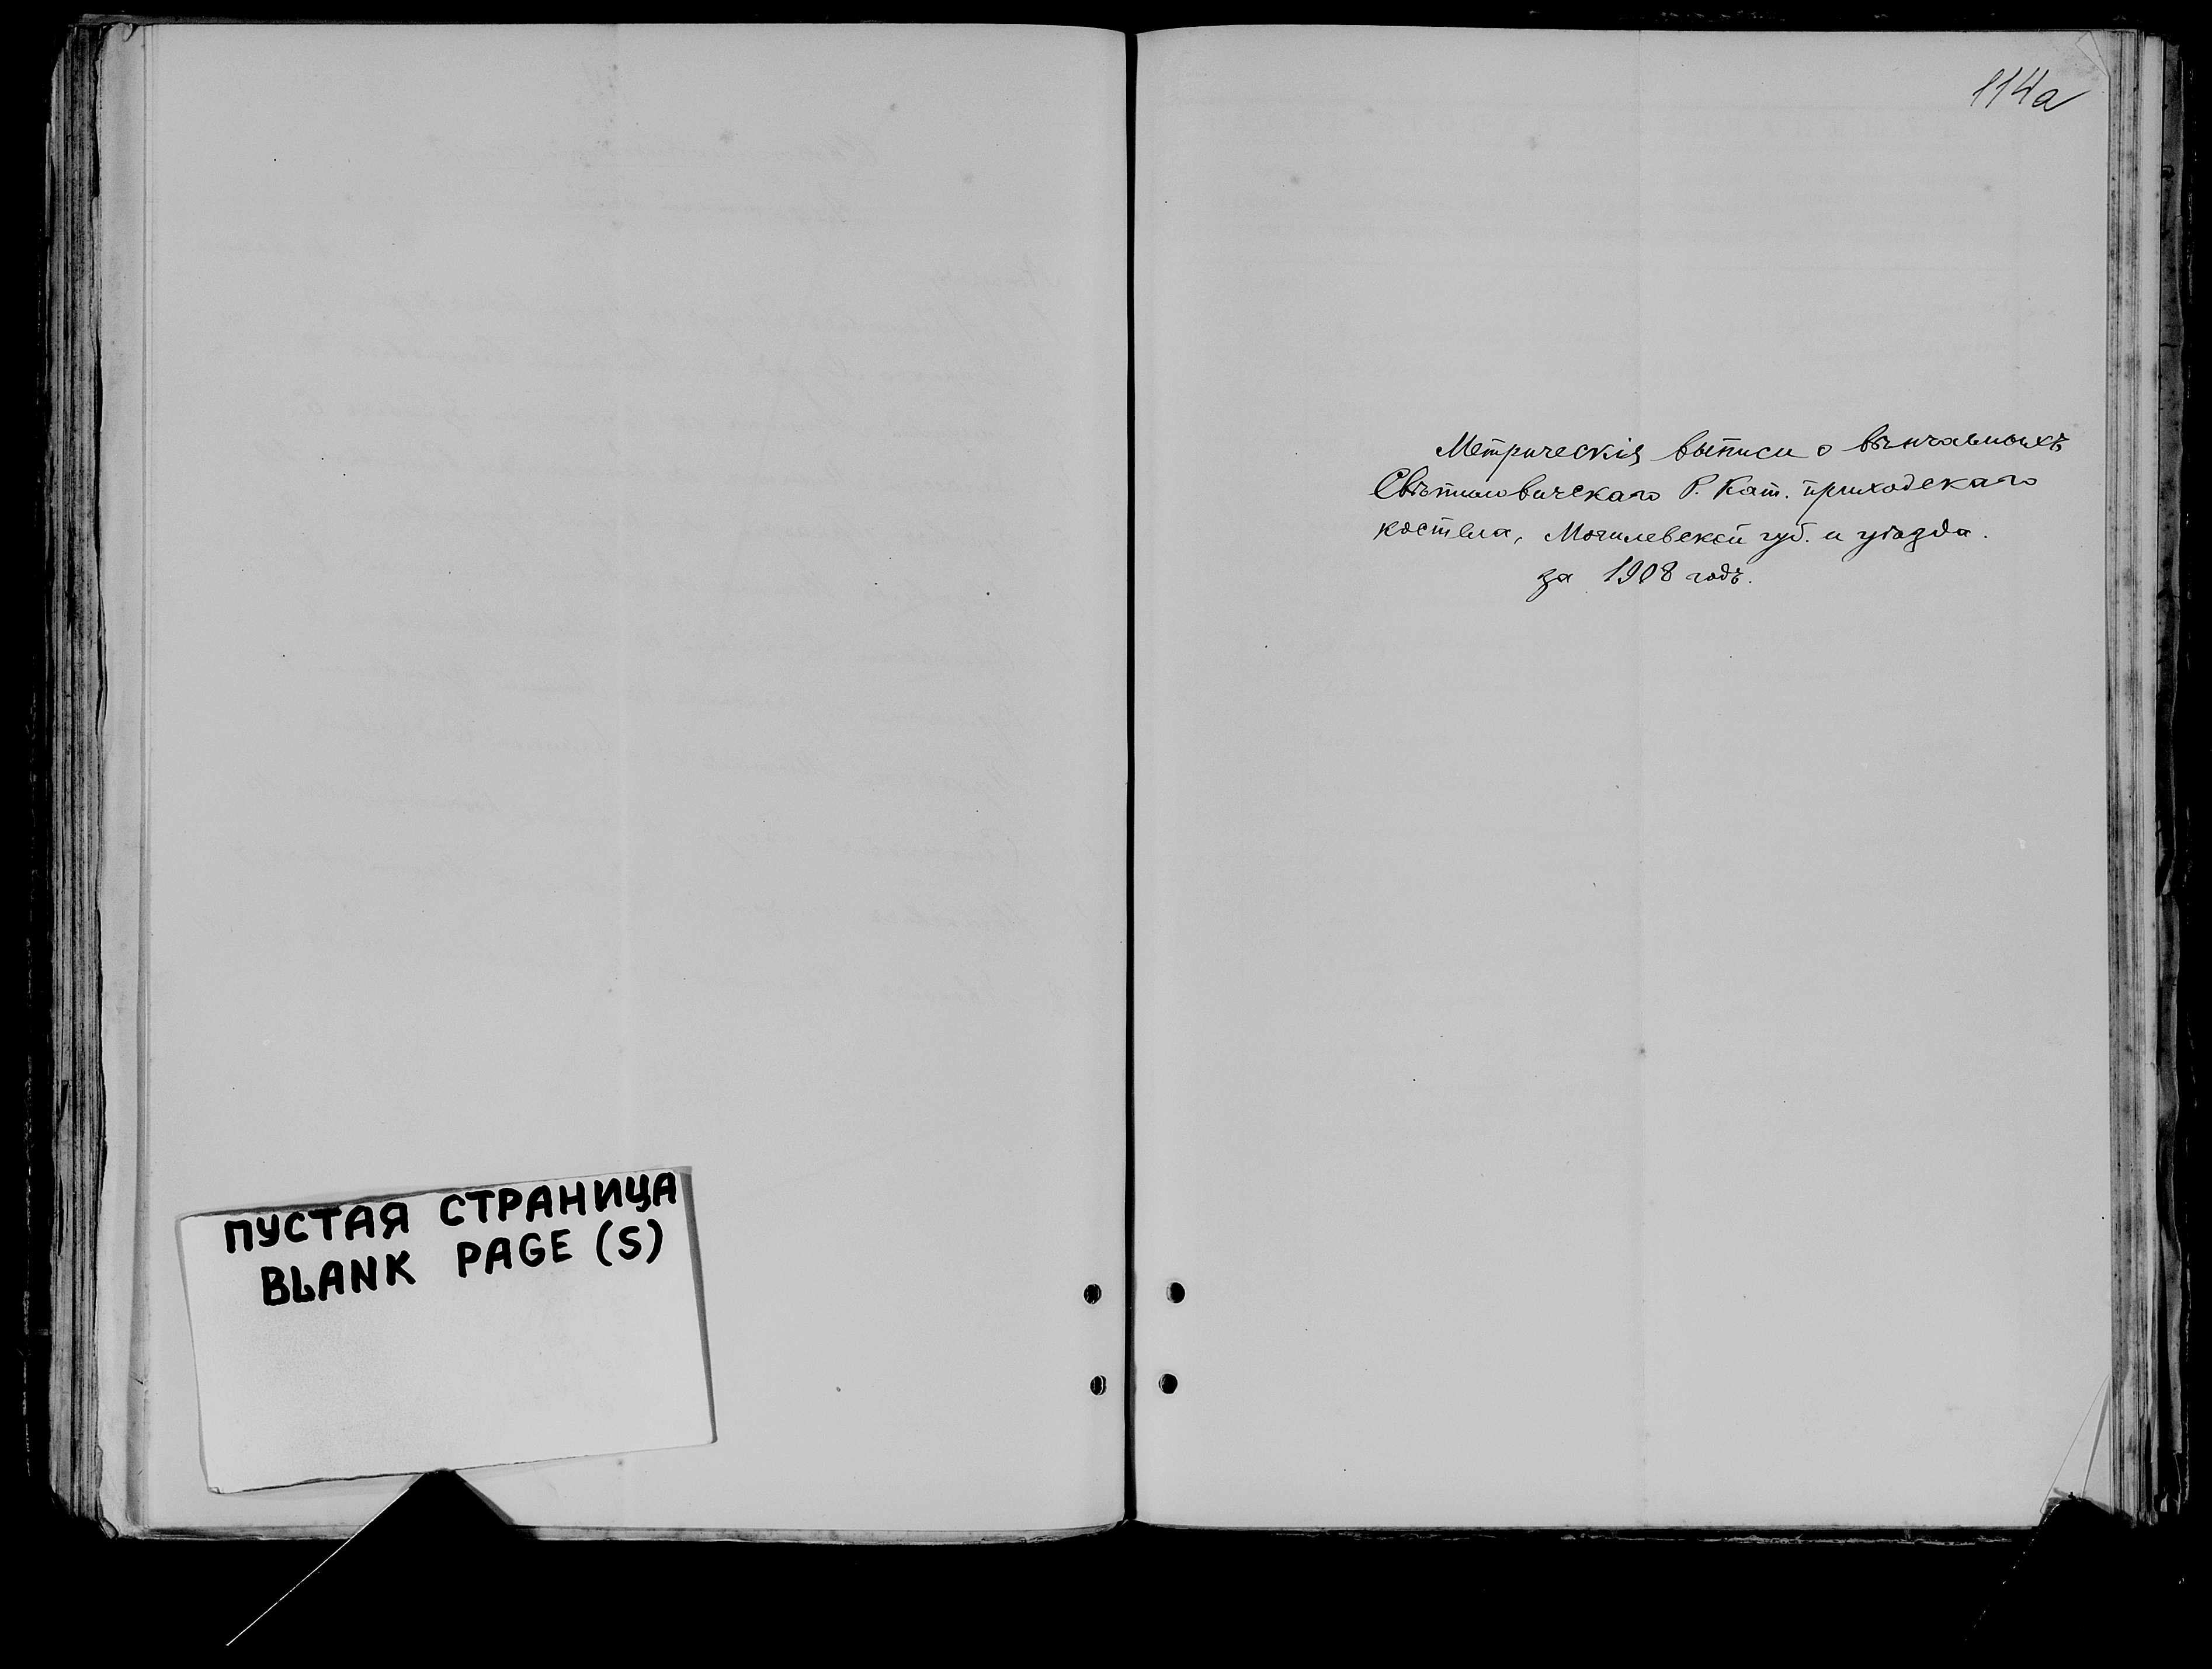 ПУСТАЯ СТРАНИЦА
BLANK PAGE (S)
114а
Метрическія выписи о вѣнчанныхъ
Свѣтиловичскаго Р. Кат. приходскаго
костела, Могилевской губ. и уѣзда.
за 1908 годъ.